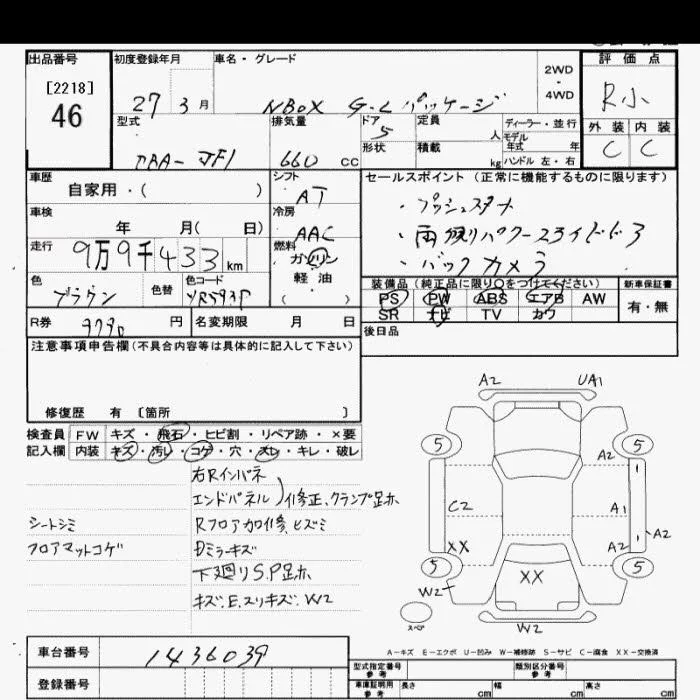 出品番号
[2218]
46
初度登録年月
27 3 月
車名・グレード
NBOX G-Lパッケージ
2WD
・
4WD
評価点
R小
外装 内装
C C
型式
DBA-JF1
排気量
660 cc
ドア
5
形状
定員
人
積載
kg
ディーラー・並行
モデル
年式 年
ハンドル 左・右
車歴
自家用・( )
シフト
AT
車検
年 月( 日)
冷房
AAC
走行
9万9千433 km
燃料
ガソリン
軽油
( )
色
ブラウン
色替
色コード
YR593P
R券
9790 円
名変期限 月 日
セールスポイント (正常に機能するものに限ります)
・プッシュスタート
・両側パワースライドドア
・バックカメラ
装備品 (純正品に限り○をつけてください)
PS PW ABS エアB AW
SR ナビ TV カワ
新車保証書
有・無
後日品
注意事項申告欄 (不具合内容等は具体的に記入して下さい)
修復歴 有 〔箇所 〕
検査員
記入欄
FW キズ・飛石・ヒビ割・リペア跡・×要
内装 キズ・汚レ・コゲ・穴・スレ・キレ・破レ
右Rインパネ
エンドパネル 修正、クランプ足ホ
シートシミ
Rフロア加修、ヒズミ
フロアマットコゲ
Dミラーキズ
下廻りS.P足ホ
キズ、E、スリキズ、W2
A2 UA1
5 5
A2
C2 A1
XX A2 A2
5 5
W2 XX
スペア
W2
A-キズ E-エクボ U-凹み W-補修跡 S-サビ C-腐食 XX-交換済
車台番号
1436039
登録番号
型式指定番号
参考
類別区分番号
参考
車庫証明用
参考
長さ cm 幅 cm 高さ cm